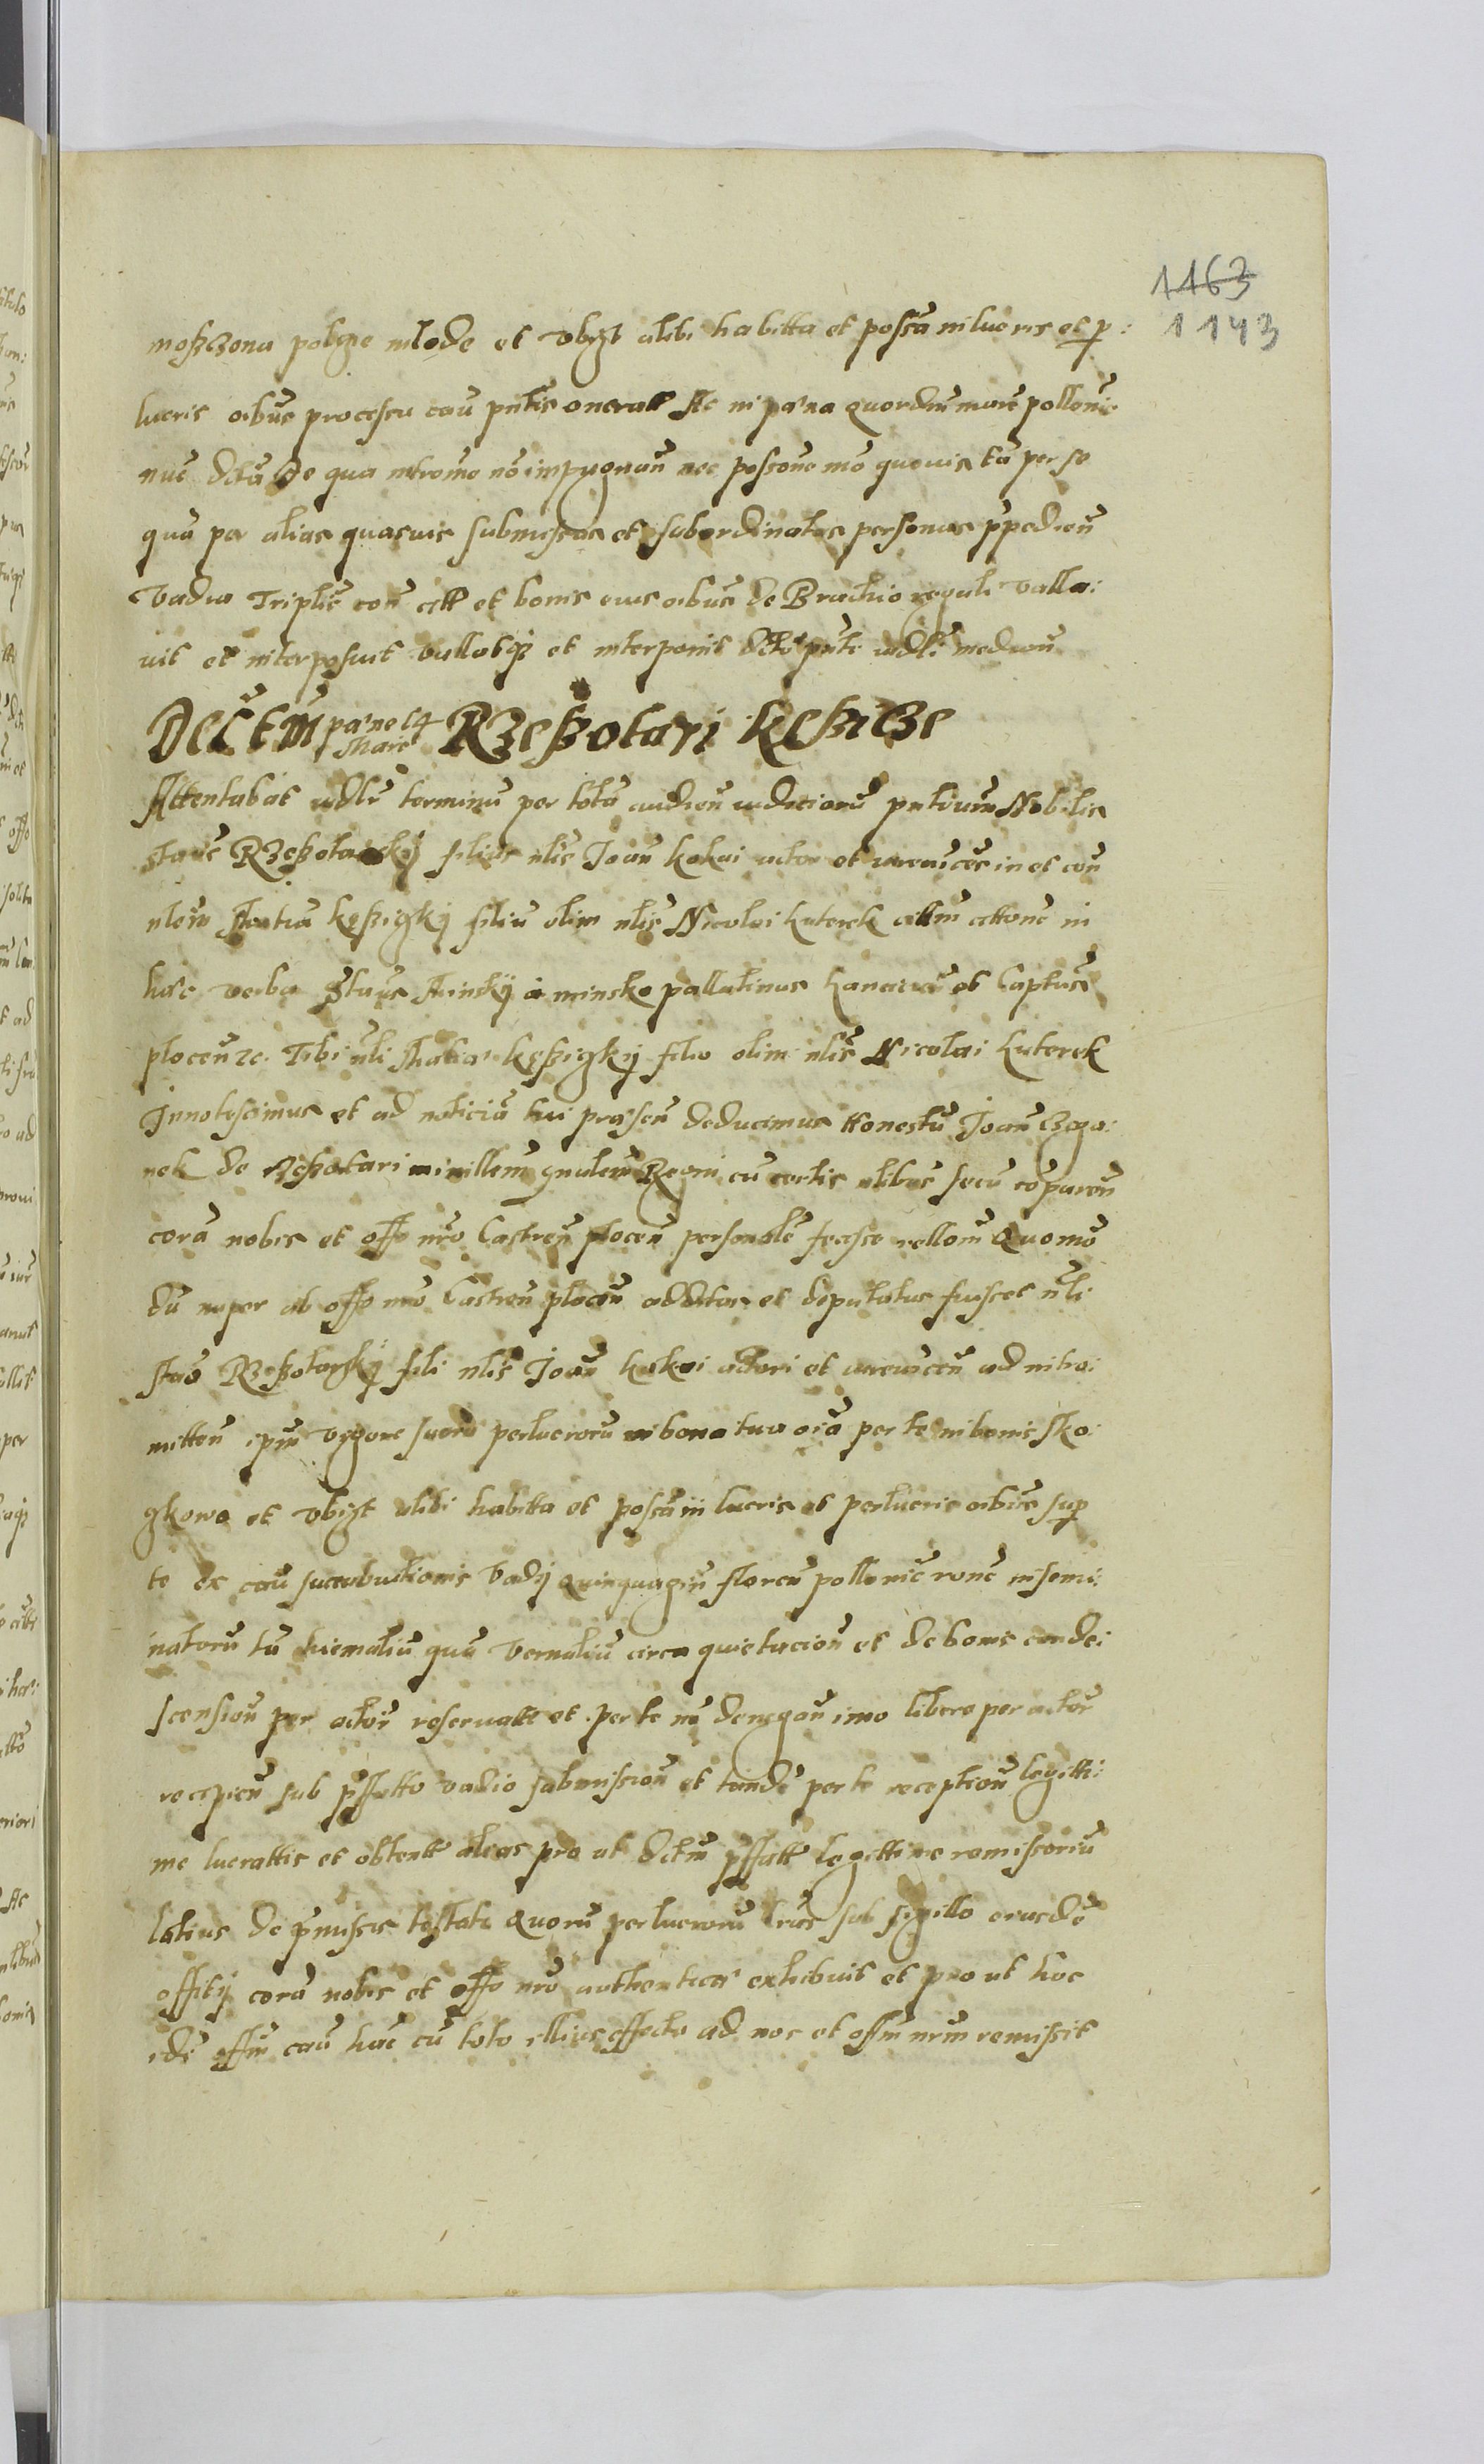 1163
1143
moßczona połgze mlode et vbigz alibi habitta et possa in lucris et p:
lucris oibus processu cau pntis onerall Ac in pæna quordmmare pollonic
nuc dcta de qua intromo no impugnan nec possone mo quouis ta per se
qua per alias quasuis submissas et subordinatas personas ppedien
Vadia Triplic con citt et bonis eius oibus de Brachio regali valla:
uit et interposuit vallatq et interponit dcto pnte iudli mediou
Dectm pæne 14 Marc Rzeßotari keßicze
Attentabat iudle terminu per tota audien iudiciorum pntium Nobilis
Staus Rzeßotarskÿ filius nlis Joan kokai actor et euincens in et con
nlem Statia kęßiczkÿ filiu olim nlis Nicolai kuterek cittm cittone in
hæc verba Staus Minskÿ a minsko pallatinus Lanciciæ et Captus
plocen zc. Tibi nli Matia kęßiczkÿ filio olim nlis Nicolai kuterek
Innotescimus et ad noticia tui præsen deducimus Honestu Joan Czga:
nek de rzeßotari minillem gnalem Regni cu certis nlibus secu coparen
cora nobis et offo nro Castren plocen personale fecisse rellom Quomo
du nuper ab offo nro Castren plocen additus et deputatus fuisset nli
Stao Rzeßotarskÿ fili nlis Joan kokai actori et euincen ad intro:
mitten ipm vigore suoru perlucroru in bona tua oia per te in bonis sko
zkowo et vbizt alibi habitta et possa in lucris et perlucris oibus sup
te ex cau succubuitionis vadÿ quinquagin floren pollonic rone in semi:
natoru ta hiemaliu qua vernaliu circa quietacion et de bonis conde:
scension per actor reseruatt et per te no denegan imo libere per actor
recipien sub pffatto vadio submission et tande per te reception legitti:
me lucrattis et obtentt alias pro ut dctm pffatt legittime remissoriu
latius de pmissis testatr Quoru perlucroru lras sub sigillo eiusde
offitÿ cora nobis et offo nro authenticas exhibuit et pro ut hoc
ide offm cau hac cu toto illius effectu ad nos et offm nrm remissit